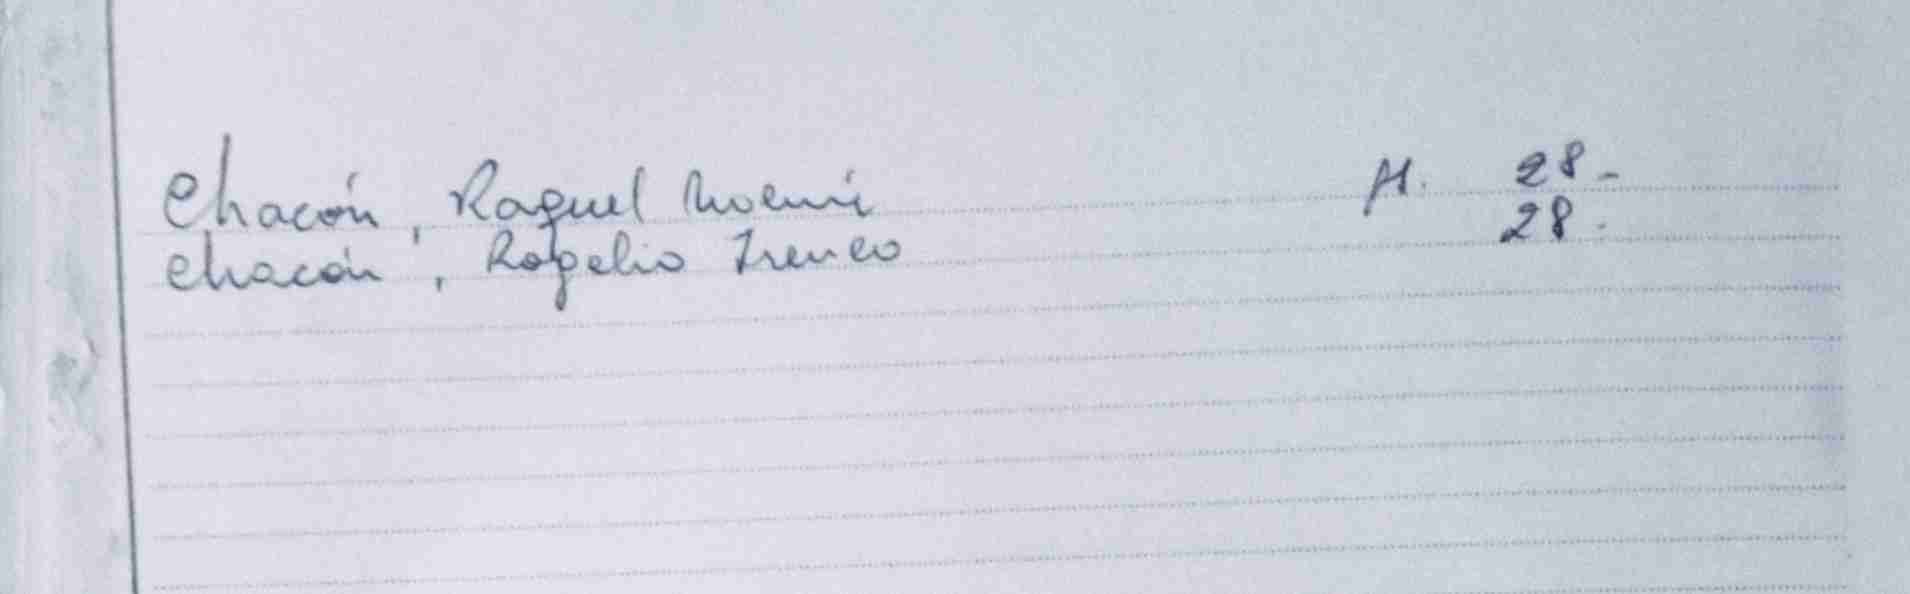 Chacón, Raquel Noemí H. 28-
Chacón, Rogelio Ireneo 28.